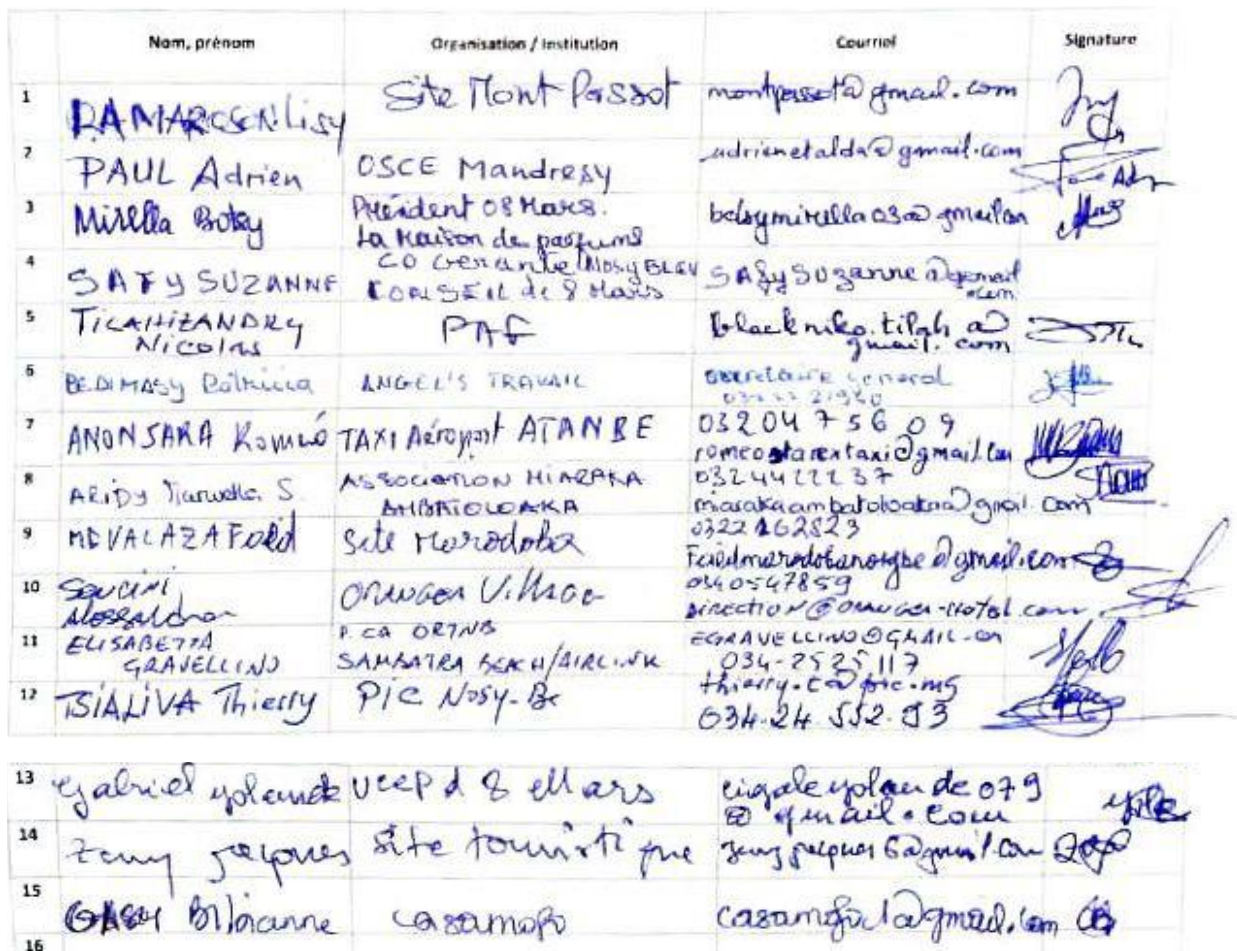 Nom, prénom Organisation / Institution Courriel Signature
1 RAMAROSON Lisy Site Mont Passot montpassot@gmail.com
2 PAUL Adrien OSCE Mandresy adrienetalda@gmail.com
3 Mirella Botsy Président 08 Mars.
La Maison de parfums botsymirella03@gmail.com
4 SAFY SUZANNE CO Gerante Nosy BLEU
CONSEIL de 8 Mars SAfySuzanne@gmail
.com
5 TILAHIZANDRY
Nicolas PAF blackniko.tilah@
gmail.com
6 BEDIMASY Patricia ANGEL'S TRAVAIL secretaire general
7 ANONJARA Roméo TAXI Aéroport ATANBE 032 04 756 09
@gmail.com
8 ARIDY S. ASSOCIATION MIARAKA
AMBATOLOAKA 0324422237
miarakaambatoloaka@gmail.com
9 MDVALAZA Faid Site Marodoka 0322162823
Faidmarodokanosybe@gmail.com
10 ORANGEA Village 0340547859
DIRECTION@ORANGEA-HOTEL.com
11 ELISABETTA
GRAVELLINO P.CA ORTNB
SAMBATRA BEACH/AIRLINK EGRAVELLINO@GMAIL.com
034-2525117
12 TSIALIVA Thierry PIC Nosy-Be thierry.t@pic.mg
034.24.552.93
13 Gabriel yolande d 8 Mars cigaleyolande079
@gmail.com
14 Zamy jacques Site touristique
15 Casamofo casamofo1@gmail.com
16